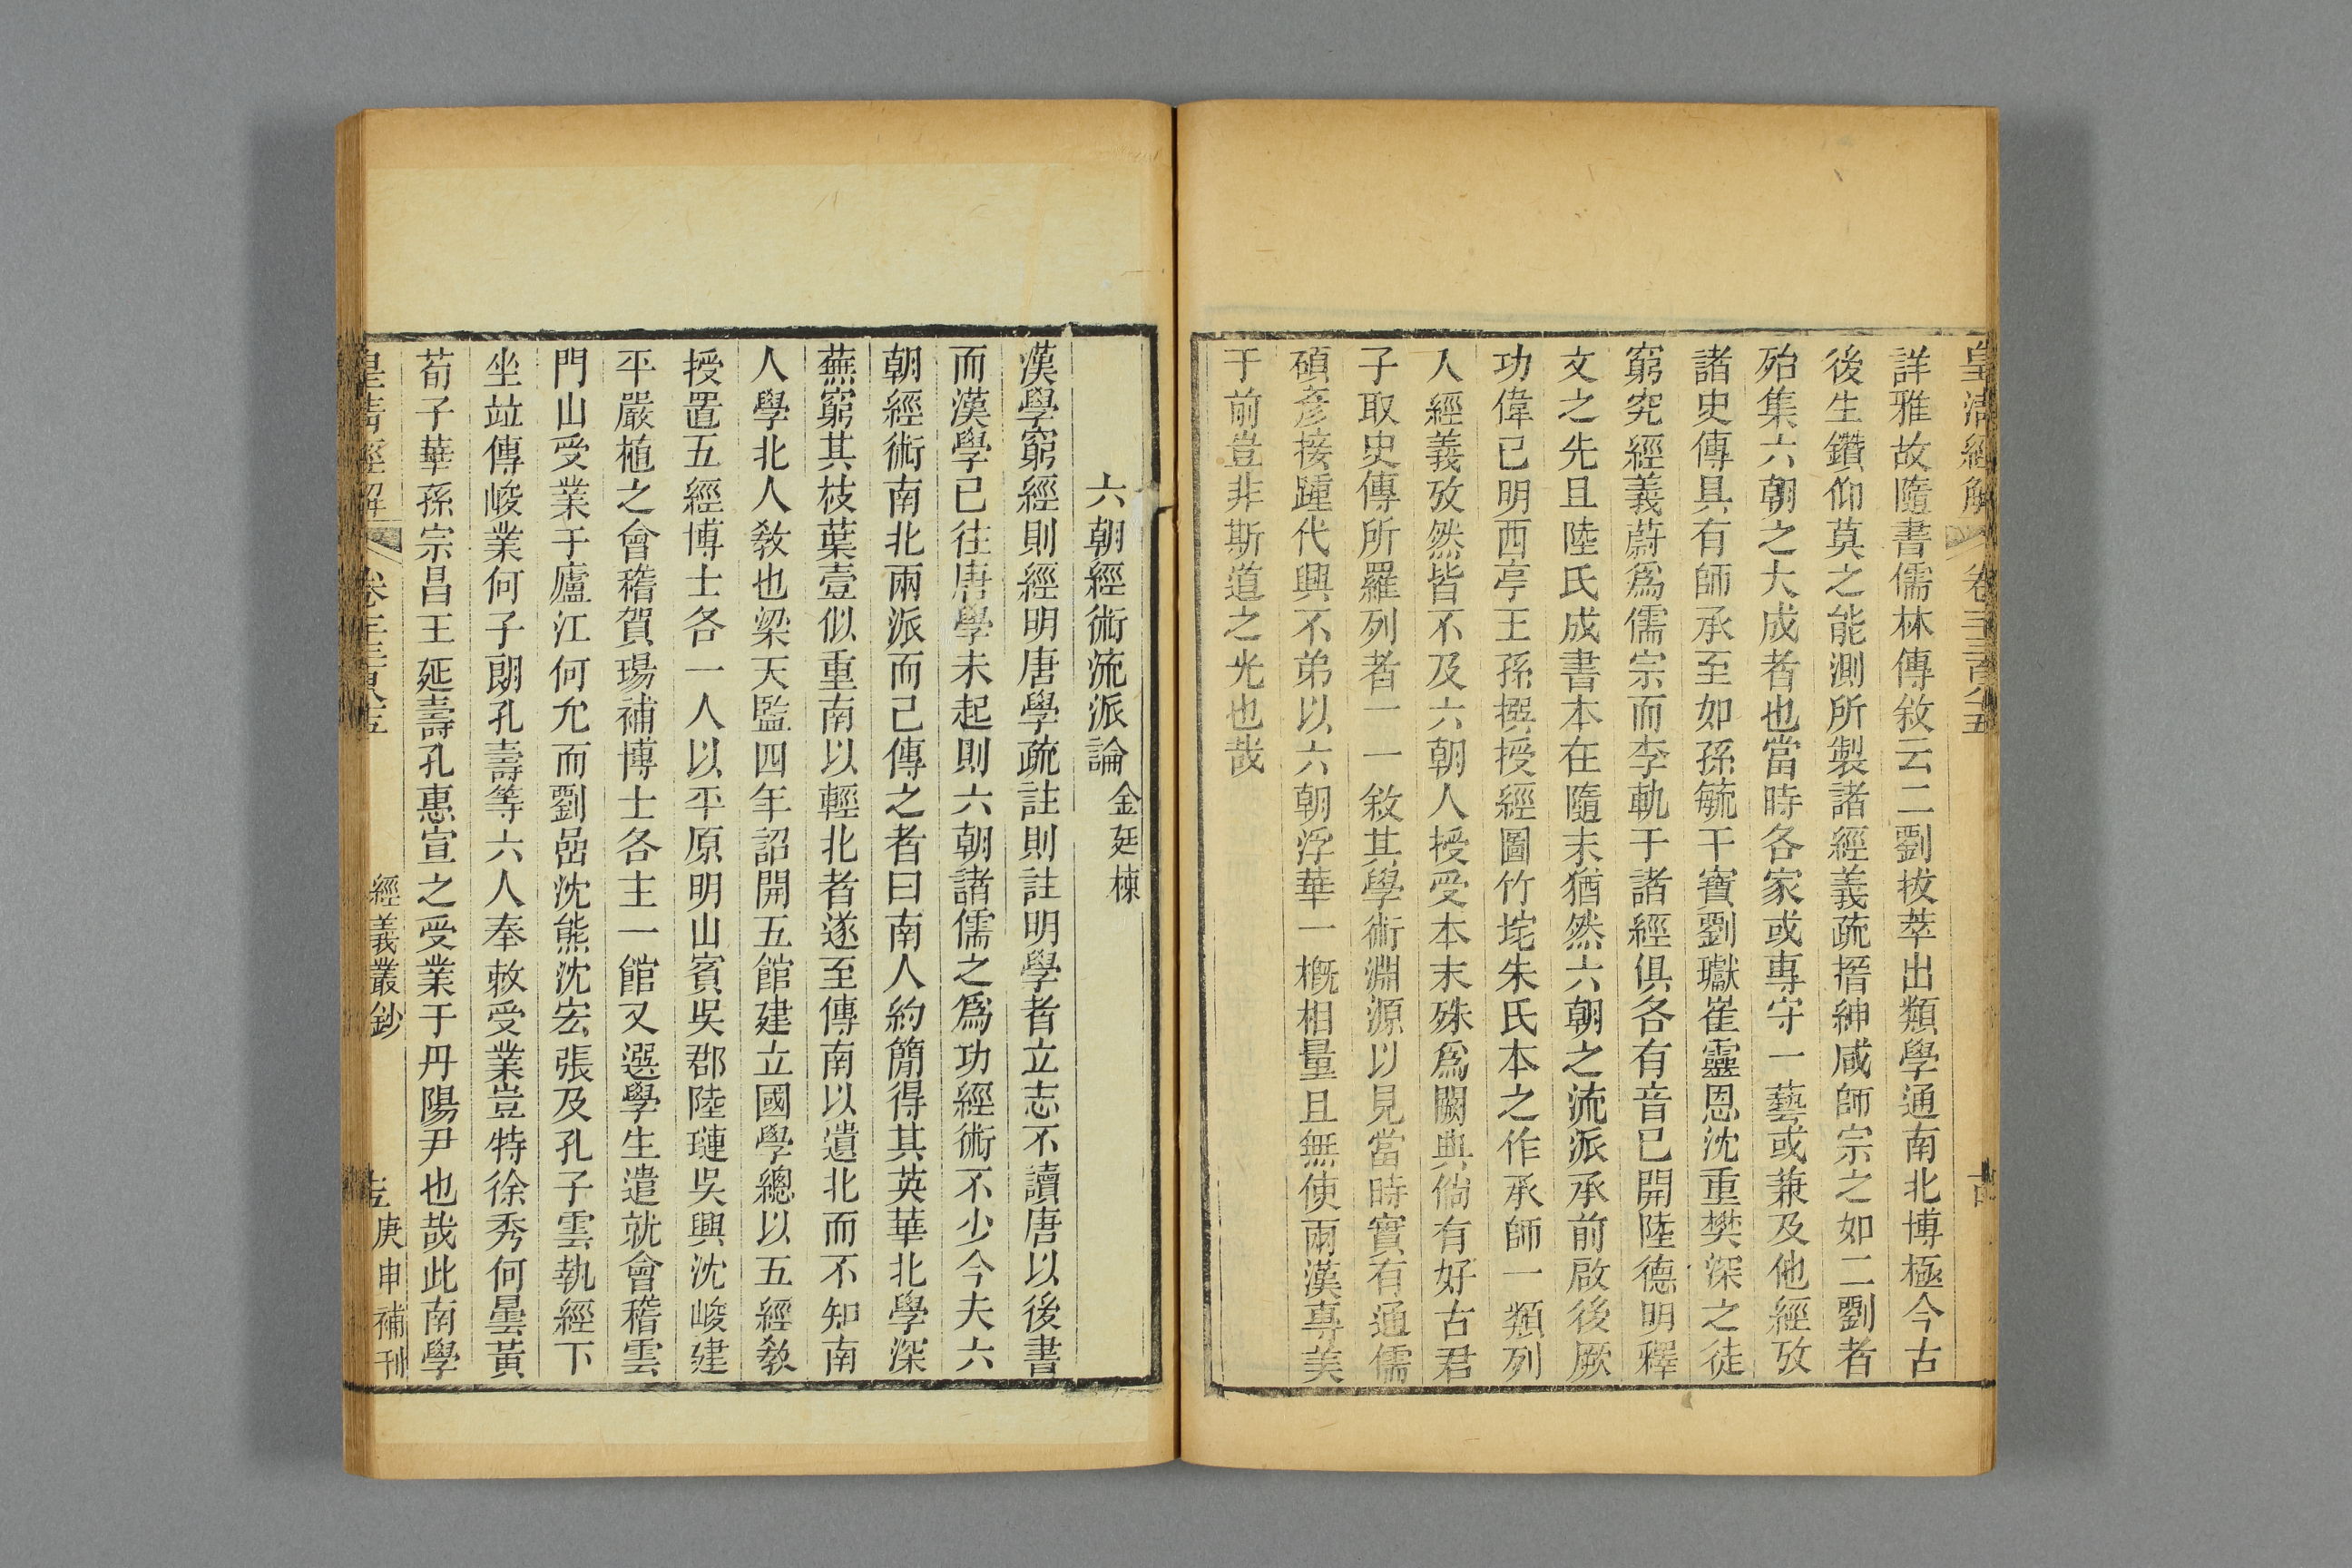 皇清經解
卷一千三百八十五
十四
詳雅故隨書儒林傳敘云二劉拔萃出類學通南北博極今古
後生鑽仰莫之能測所製諸經義疏搢紳咸師宗之如二劉者
殆集六朝之大成者也當時各家或專守一藝或兼及他經攷
諸史傳具有師承至如孫毓干寶劉瓛崔靈恩沈重樊深之徒
窮究經義蔚爲儒宗而李軌于諸經俱各有音已開陸德明釋
文之先且陸氏成書本在隨末猶然六朝之流派承前啟後厥
功偉已明西亭王孫撰授經圖竹垞朱氏本之作承師一類列
人經義攷然皆不及六朝人授受本末殊爲闕典倘有好古君
子取史傳所羅列者一一敘其學術淵源以見當時實有通儒
碩彥接踵代興不弟以六朝浮華一概相量且無使兩漢專美
于前豈非斯道之光也哉
六朝經術流派論 金廷棟
漢學窮經則經明唐學疏註則註明學者立志不讀唐以後書
而漢學已往唐學未起則六朝諸儒之爲功經術不少今夫六
朝經術南北兩派而已傳之者曰南人約簡得其英華北學深
蕪窮其枝葉壹似重南以輕北者遂至傳南以遺北而不知南
人學北人敎也梁天監四年詔開五館建立國學總以五經敎
授置五經博士各一人以平原明山賓吳郡陸璉吳興沈峻建
平嚴植之會稽賀瑒補博士各主一館又選學生遣就會稽雲
門山受業于廬江何允而劉嵒沈熊沈宏張及孔子雲執經下
坐竝傳峻業何子朗孔壽等六人奉敕受業豈特徐秀何曇黃
荀子華孫宗昌王延壽孔惠宣之受業于丹陽尹也哉此南學
皇清經解
經義叢鈔
十五
庚申補刊